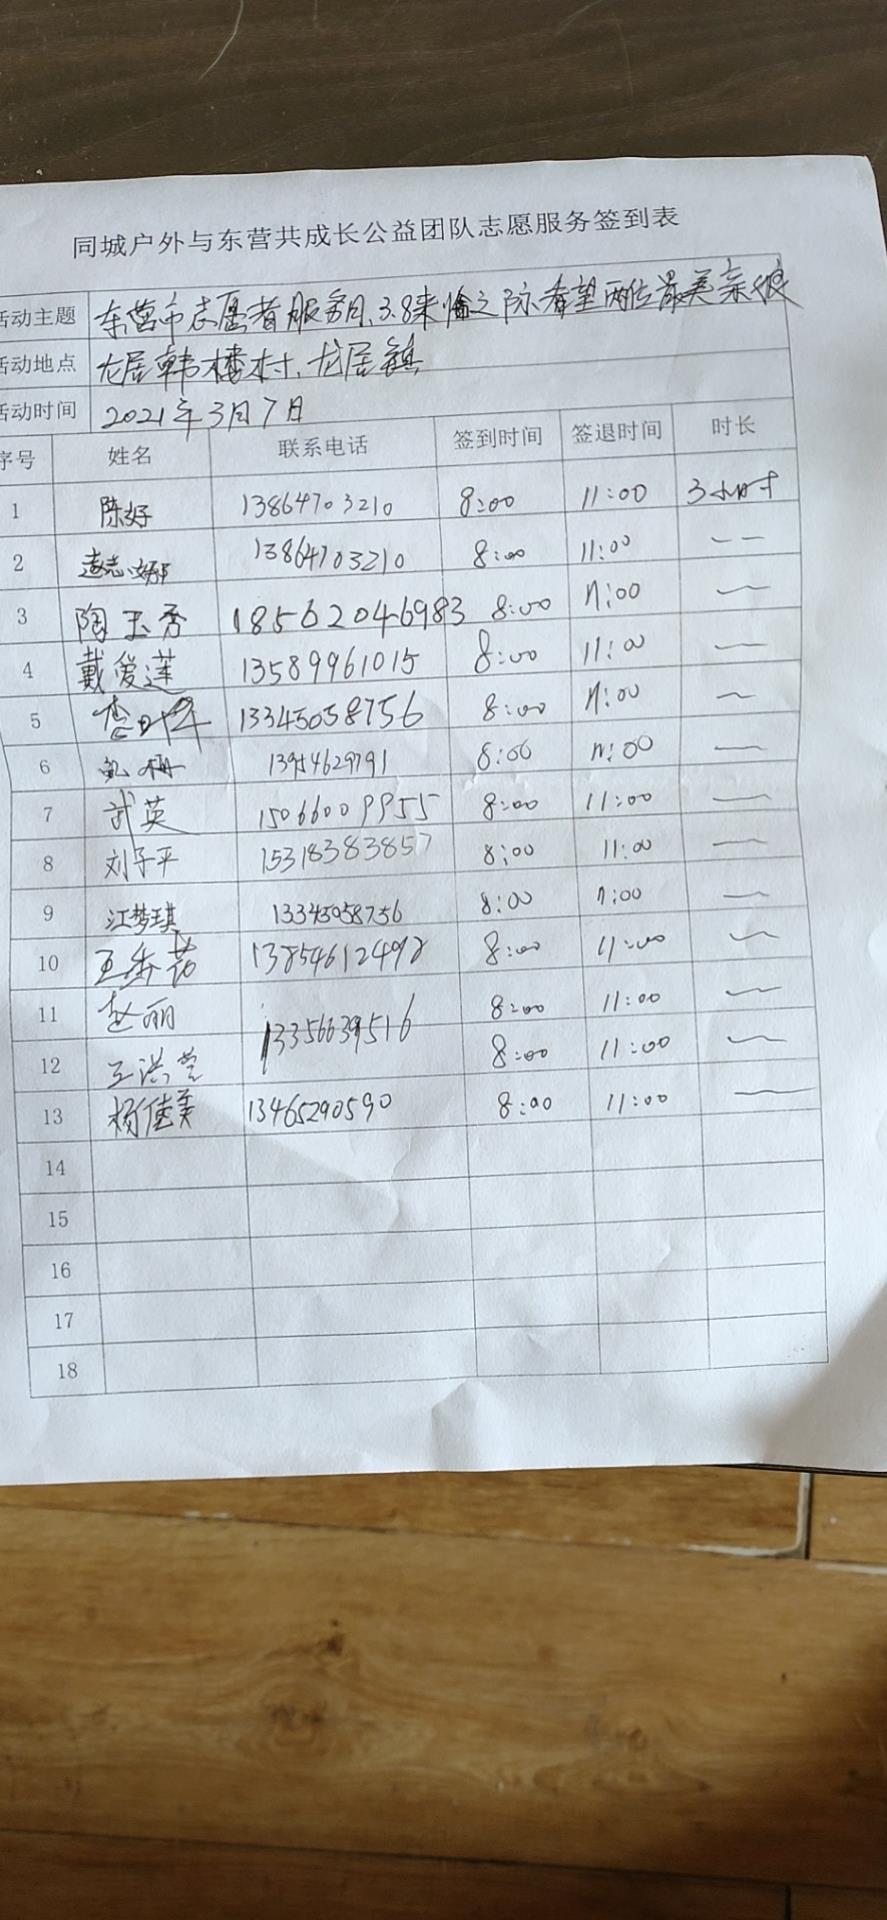 同城户外与东营共成长公益团队志愿服务签到表
活动主题 东营市志愿者服务月、3.8来临之际、希望两位最美亲娘
活动地点 龙居韩楼村、龙居镇
活动时间 2021年3月7日
序号 姓名 联系电话 签到时间 签退时间 时长
1 陈好 13864703210 8:00 11:00 3小时
2 13864703210 8:00 11:00 — —
3 陶玉秀 18562046983 8:00 11:00 —
4 戴爱莲 13589961015 8:00 11:00 —
5 13345058756 8:00 11:00 —
6 13954629791 8:00 11:00 —
7 武英 15066009955 8:00 11:00 —
8 刘子平 15318383857 8:00 11:00 —
9 江梦琪 13345058756 8:00 11:00 —
10 王 13854612492 8:00 11:00 —
11 赵丽 13356639516 8:00 11:00 —
12 王洪 8:00 11:00 —
13 杨佳美 13465290590 8:00 11:00 —
14
15
16
17
18